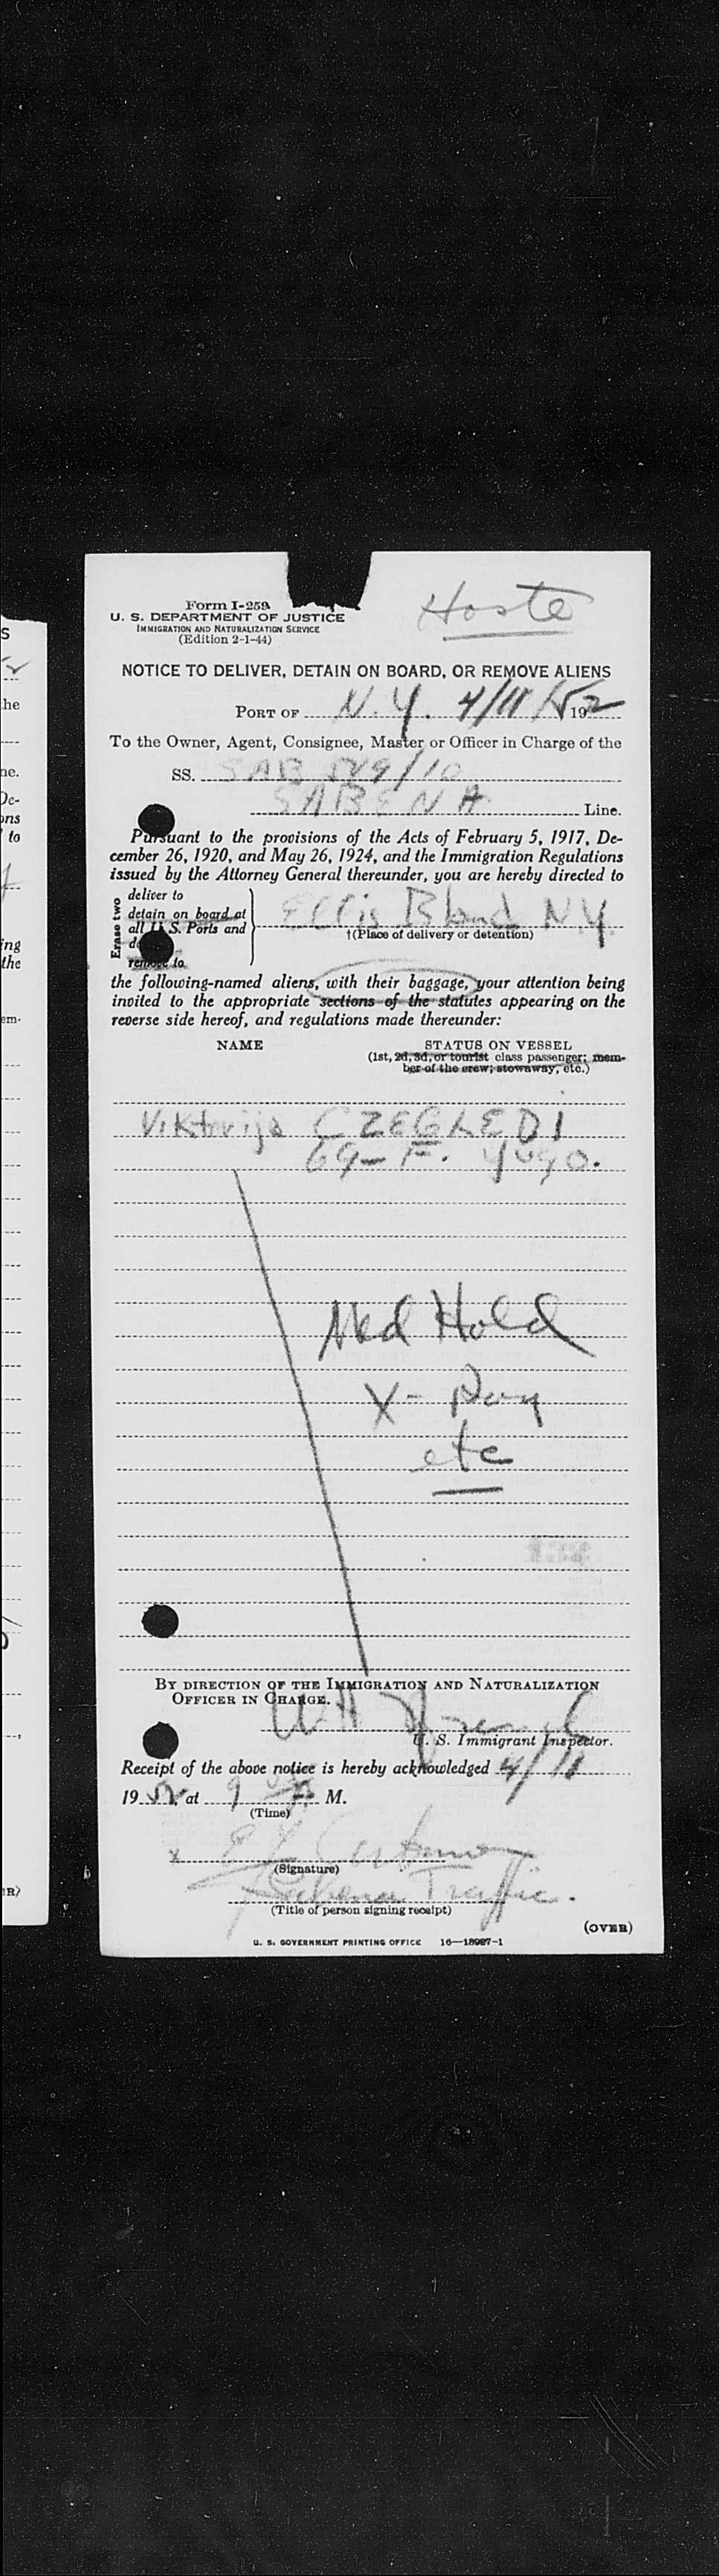 Form I-259
U. S. DEPARTMENT OF JUSTICE
IMMIGRATION AND NATURALIZATION SERVICE
(Edition 2-1-44)
Hoste
NOTICE TO DELIVER, DETAIN ON BOARD, OR REMOVE ALIENS
PORT OF N.Y. 4/11/52 192
To the Owner, Agent, Consignee, Master or Officer in Charge of the
SS. SAB 549/10
SABENA Line.
Pursuant to the provisions of the Acts of February 5, 1917, De-
cember 26, 1920, and May 26, 1924, and the Immigration Regulations
issued by the Attorney General thereunder, you are hereby directed to
Erase two
deliver to
detain on board at
all U. S. Ports and
remove to
Ellis Island N.Y.
†(Place of delivery or detention)
the following-named aliens, with their baggage, your attention being
invited to the appropriate sections of the statutes appearing on the
reverse side hereof, and regulations made thereunder:
NAME STATUS ON VESSEL
(1st, 2d, 3d, or tourist class passenger; mem-
ber of the crew; stowaway, etc.)
Viktorija CZEGLEDI
69-F. Yugo.
Med Hold
X-Ray
etc
BY DIRECTION OF THE IMMIGRATION AND NATURALIZATION
OFFICER IN CHARGE.
U. S. Immigrant Inspector.
Receipt of the above notice is hereby acknowledged 4/11
1952, at 9 M.
(Time)
x
(Signature)
Sabena Traffic.
(Title of person signing receipt)
(OVER)
U. S. GOVERNMENT PRINTING OFFICE 16—18987-1